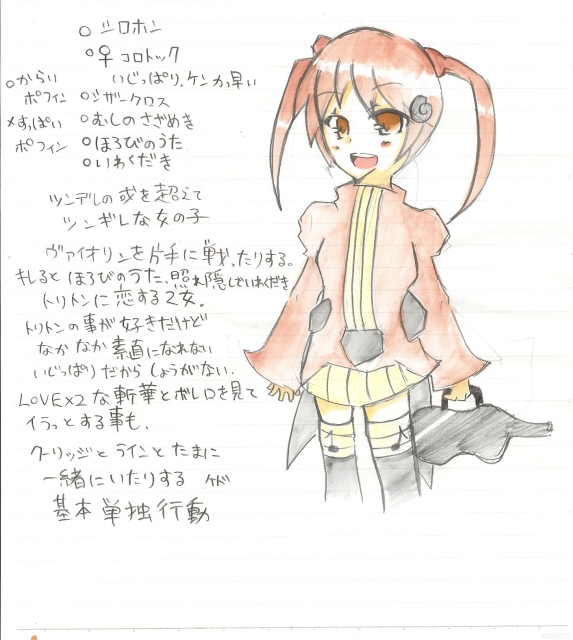 ○シロホン
○♀ コロトック
いじっぱり。ケンカ早い
○からい ポフィン
×すっぱい ポフィン
○シザークロス
○むしのさざめき
○ほろびのうた
○いわくだき
ツンデレの域を超えて
ツンギレな女の子
ヴァイオリンを片手に戦ったりする。
キレると ほろびのうた、照れ隠しでいわくだき
トリトンに恋する乙女。
トリトンの事が好きだけど
なかなか素直になれない
いじっぱりだからしょうがない。
LOVE×2な斬華とボレロを見て
イラっとする事も。
クーリッジとラインとたまに
一緒にいたりする けど
基本単独行動